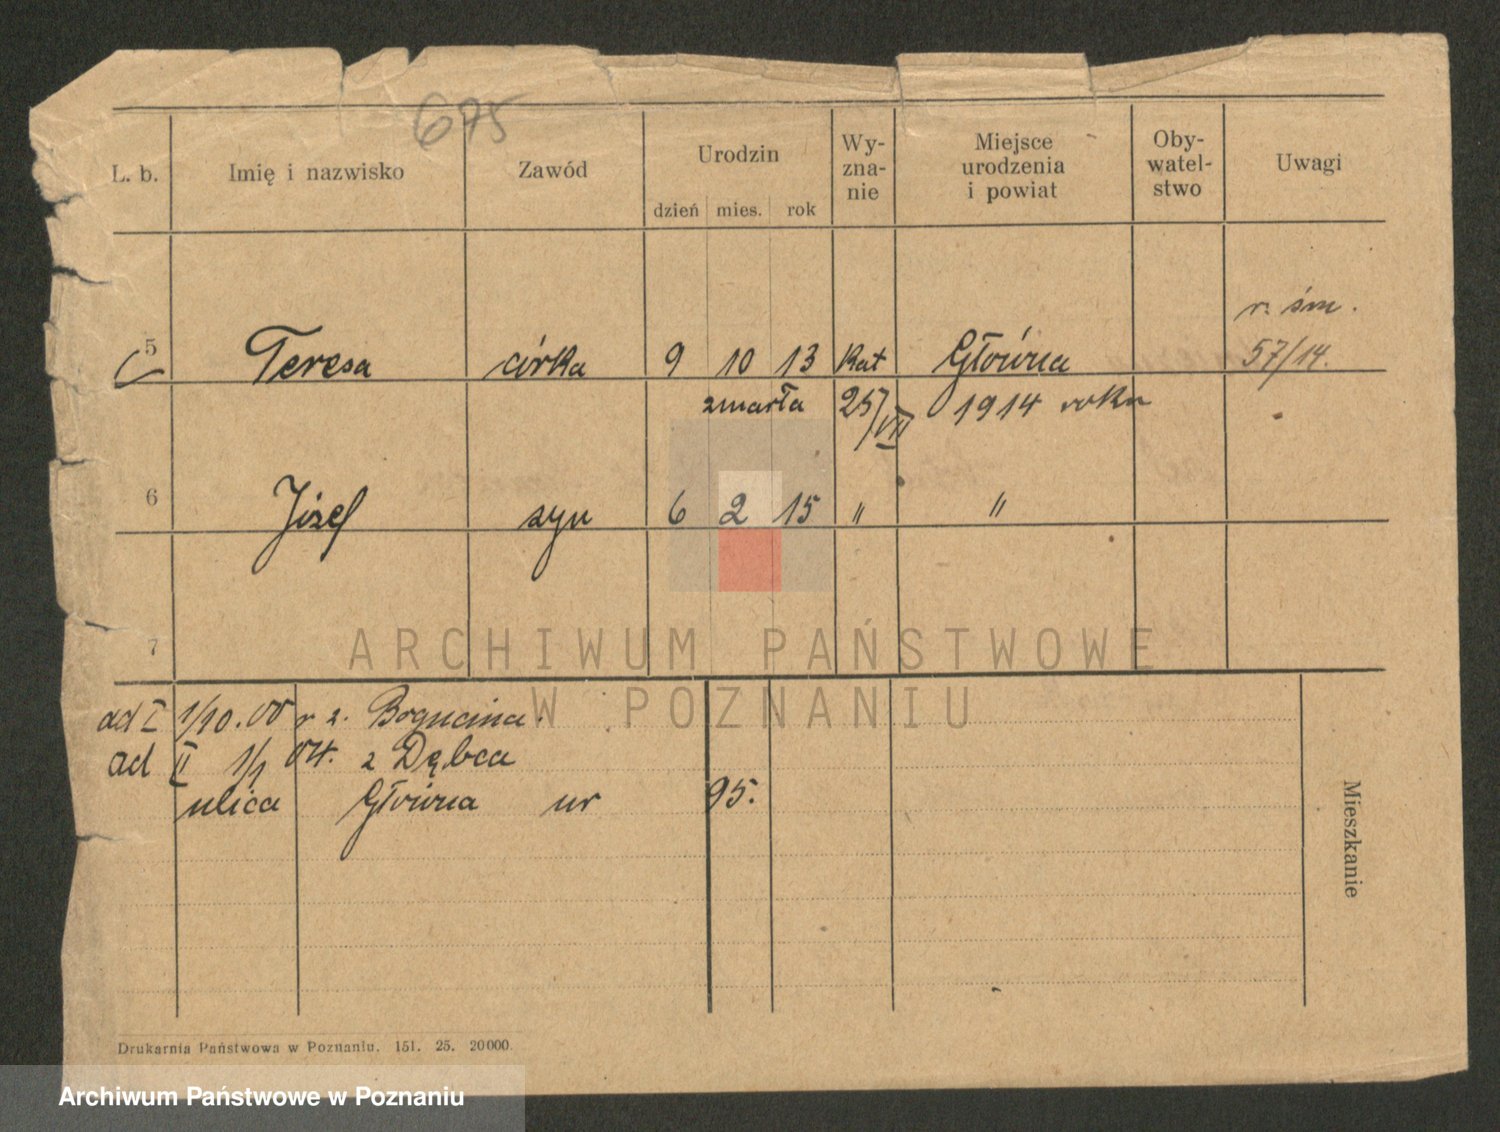 675
L. b. Imię i nazwisko Zawód Urodzin dzień mies. rok Wy-zna-nie Miejsce urodzenia i powiat Oby-watel-stwo Uwagi
r. śm.
5 Teresa córka 9 10 13 Kat Główna 57/14.
zmarła 25/VII 1914 roku
6 Józef syn 6 2 15 " "
7
ARCHIWUM PAŃSTWOWE
W POZNANIU
ad I 1/10.00 r z. Bogucina.
ad II 1/1 04. z Dębca
ulica Główna nr 95.
Mieszkanie
Drukarnia Państwowa w Poznaniu. 151. 25. 20000.
Archiwum Państwowe w Poznaniu